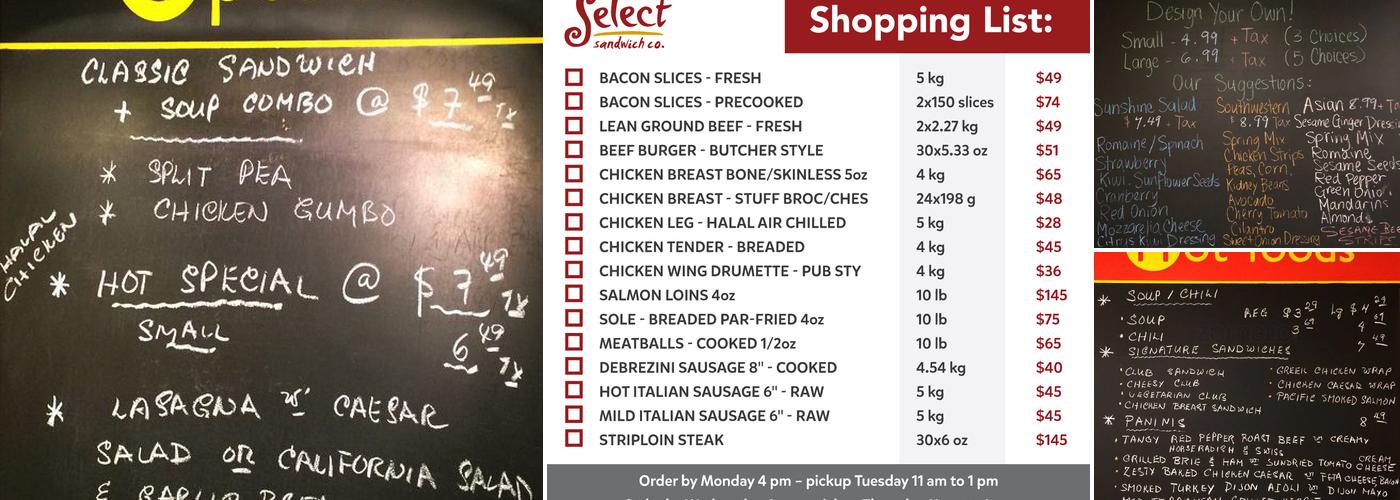 CLASSIC SANDWICH
+ SOUP COMBO @ $7 49 Tx
* SPLIT PEA
* CHICKEN GUMBO
HALAL CHICKEN
* HOT SPECIAL @ $7 49 Tx
SMALL 6 49 Tx
* LASAGNA w/ CAESAR
SALAD OR CALIFORNIA SALAD
Select
sandwich co.
Shopping List:
BACON SLICES - FRESH 5 kg $49
BACON SLICES - PRECOOKED 2x150 slices $74
LEAN GROUND BEEF - FRESH 2x2.27 kg $49
BEEF BURGER - BUTCHER STYLE 30x5.33 oz $51
CHICKEN BREAST BONE/SKINLESS 5oz 4 kg $65
CHICKEN BREAST - STUFF BROC/CHES 24x198 g $48
CHICKEN LEG - HALAL AIR CHILLED 5 kg $28
CHICKEN TENDER - BREADED 4 kg $45
CHICKEN WING DRUMETTE - PUB STY 4 kg $36
SALMON LOINS 4oz 10 lb $145
SOLE - BREADED PAR-FRIED 4oz 10 lb $75
MEATBALLS - COOKED 1/2oz 10 lb $65
DEBREZINI SAUSAGE 8" - COOKED 4.54 kg $40
HOT ITALIAN SAUSAGE 6" - RAW 5 kg $45
MILD ITALIAN SAUSAGE 6" - RAW 5 kg $45
STRIPLOIN STEAK 30x6 oz $145
Order by Monday 4 pm – pickup Tuesday 11 am to 1 pm
Design Your Own!
Small - 4.99 + Tax (3 Choices)
Large - 6.99 + Tax (5 Choices)
Our Suggestions:
Sunshine Salad
$7.49 + Tax
Romaine/Spinach
Strawberry
Kiwi, Sunflower Seeds
Cranberry
Red Onion
Mozzarella Cheese
Citrus Kiwi Dressing
Southwestern
$8.99 Tax
Spring Mix
Chicken Strips
Peas, Corn,
Kidney Beans
Avocado
Cherry Tomato
Cilantro
Sweet Onion Dressing
Asian 8.99 + Ta
Sesame Ginger Dressi
Spring Mix
Romaine
Sesame Seeds
Red Pepper
Green Onion
Mandarins
Almonds
SESAME BEE
STRIPS
Hot foods
* SOUP / CHILI
• SOUP REG $3 29 Lg $4 29
• CHILI 3 69 4 69
* SIGNATURE SANDWICHES 7 49
• CLUB SANDWICH • GREEK CHICKEN WRAP
• CHEESY CLUB • CHICKEN CAESAR WRAP
• VEGETARIAN CLUB • PACIFIC SMOKED SALMON
• CHICKEN BREAST SANDWICH
* PANINIS 8 49
• TANGY RED PEPPER ROAST BEEF w/ CREAMY
HORSERADISH & SWISS
• GRILLED BRIE & HAM w/ SUNDRIED TOMATO CREAM CHEESE
• ZESTY BAKED CHICKEN CAESAR w/ FETA CHEESE
• SMOKED TURKEY DIJON AIOLI w/ DIJON MAYO